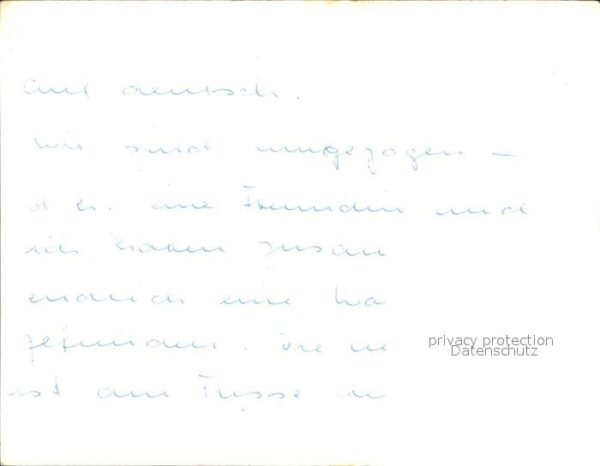 auf deutsch.
Wir sind umgezogen –
d. h. eine Freundin und
ich haben zusam
endlich eine Wo
gefunden. Die
privacy protection
Datenschutz
ist am Fusse